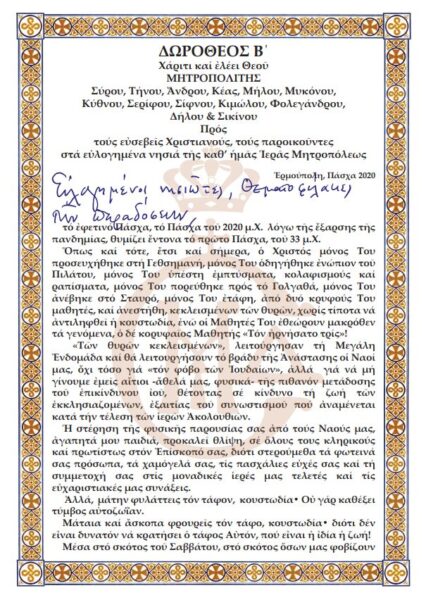 ΔΩΡΟΘΕΟΣ Β΄
Χάριτι καί ἐλέει Θεοῦ
ΜΗΤΡΟΠΟΛΙΤΗΣ
Σύρου, Τήνου, Ἄνδρου, Κέας, Μήλου, Μυκόνου,
Κύθνου, Σερίφου, Σίφνου, Κιμώλου, Φολεγάνδρου,
Δήλου & Σικίνου
Πρός
τούς εὐσεβεῖς Χριστιανούς, τούς παροικούντες
στά εὐλογημένα νησιά τῆς καθ' ἡμᾶς Ἱερᾶς Μητροπόλεως
Ἑρμούπολη, Πάσχα 2020
Εὐλογημένοι νησιῶτες, Θεματοφύλακες
τῶν Παραδόσεων,
τό ἐφετινό Πάσχα, τό Πάσχα τοῦ 2020 μ.Χ. λόγω τῆς ἔξαρσης τῆς
πανδημίας, θυμίζει ἔντονα τό πρῶτο Πάσχα, τοῦ 33 μ.Χ.
Ὅπως καί τότε, ἔτσι καί σήμερα, ὁ Χριστός μόνος Του
προσευχήθηκε στή Γεθσημανή, μόνος Του ὁδηγήθηκε ἐνώπιον τοῦ
Πιλάτου, μόνος Του ὑπέστη ἐμπτύσματα, κολαφισμούς καί
ραπίσματα, μόνος Του πορεύθηκε πρός τό Γολγαθά, μόνος Του
ἀνέβηκε στό Σταυρό, μόνος Του ἐτάφη, ἀπό δύο κρυφούς Του
μαθητές, καί ἀνέστήθη, κεκλεισμένων τῶν θυρῶν, χωρίς τίποτα νά
ἀντιληφθεῖ ἡ κουστωδία, ἐνώ οἱ Μαθητές Του ἐθεώρουν μακρόθεν
τά γενόμενα, ὁ δέ κορυφαῖος Μαθητής «Τόν ἠρνήσατο τρίς»!
«Τῶν θυρῶν κεκλεισμένων», λειτούργησαν τή Μεγάλη
Ἑνδομάδα καί θά λειτουργήσουν τό βράδυ τῆς Ἀνάστασης οἱ Ναοί
μας, ὄχι τόσο γιά «τόν φόβο τῶν Ἰουδαίων», ἀλλά γιά νά μή
γίνουμε ἐμεῖς αἴτιοι -ἄθελά μας, φυσικά- τῆς πιθανόν μετάδοσης
τοῦ ἐπικίνδυνου ἰοῦ, θέτοντας σέ κίνδυνο τή ζωή τῶν
ἐκκλησιαζομένων, ἐξαιτίας τοῦ συνωστισμοῦ πού ἀναμένεται
κατά τήν τέλεση τῶν ἱερῶν Ἀκολουθιῶν.
Ἡ στέρηση τῆς φυσικῆς παρουσίας σας ἀπό τούς Ναούς μας,
ἀγαπητά μου παιδιά, προκαλεῖ θλίψη, σέ ὅλους τούς κληρικούς
καί πρωτίστως στόν Ἐπίσκοπό σας, διότι στερούμεθα τά φωτεινά
σας πρόσωπα, τά χαμόγελά σας, τίς πασχάλιες εὐχές σας καί τή
συμμετοχή σας στίς μοναδικές ἱερές μας τελετές καί τίς
εὐχαριστιακές μας συνάξεις.
Ἀλλά, μάτην φυλάττεις τόν τάφον, κουστωδία• Οὐ γάρ καθέξει
τύμβος αὐτοζωΐαν.
Μάταια καί ἄσκοπα φρουρεῖς τόν τάφο, κουστωδία• διότι δέν
εἶναι δυνατόν νά κρατήσει ὁ τάφος Αὐτόν, πού εἶναι ἡ ἴδια ἡ ζωή!
Μέσα στό σκότος τοῦ Σαββάτου, στό σκότος ὅσων μας φοβίζουν